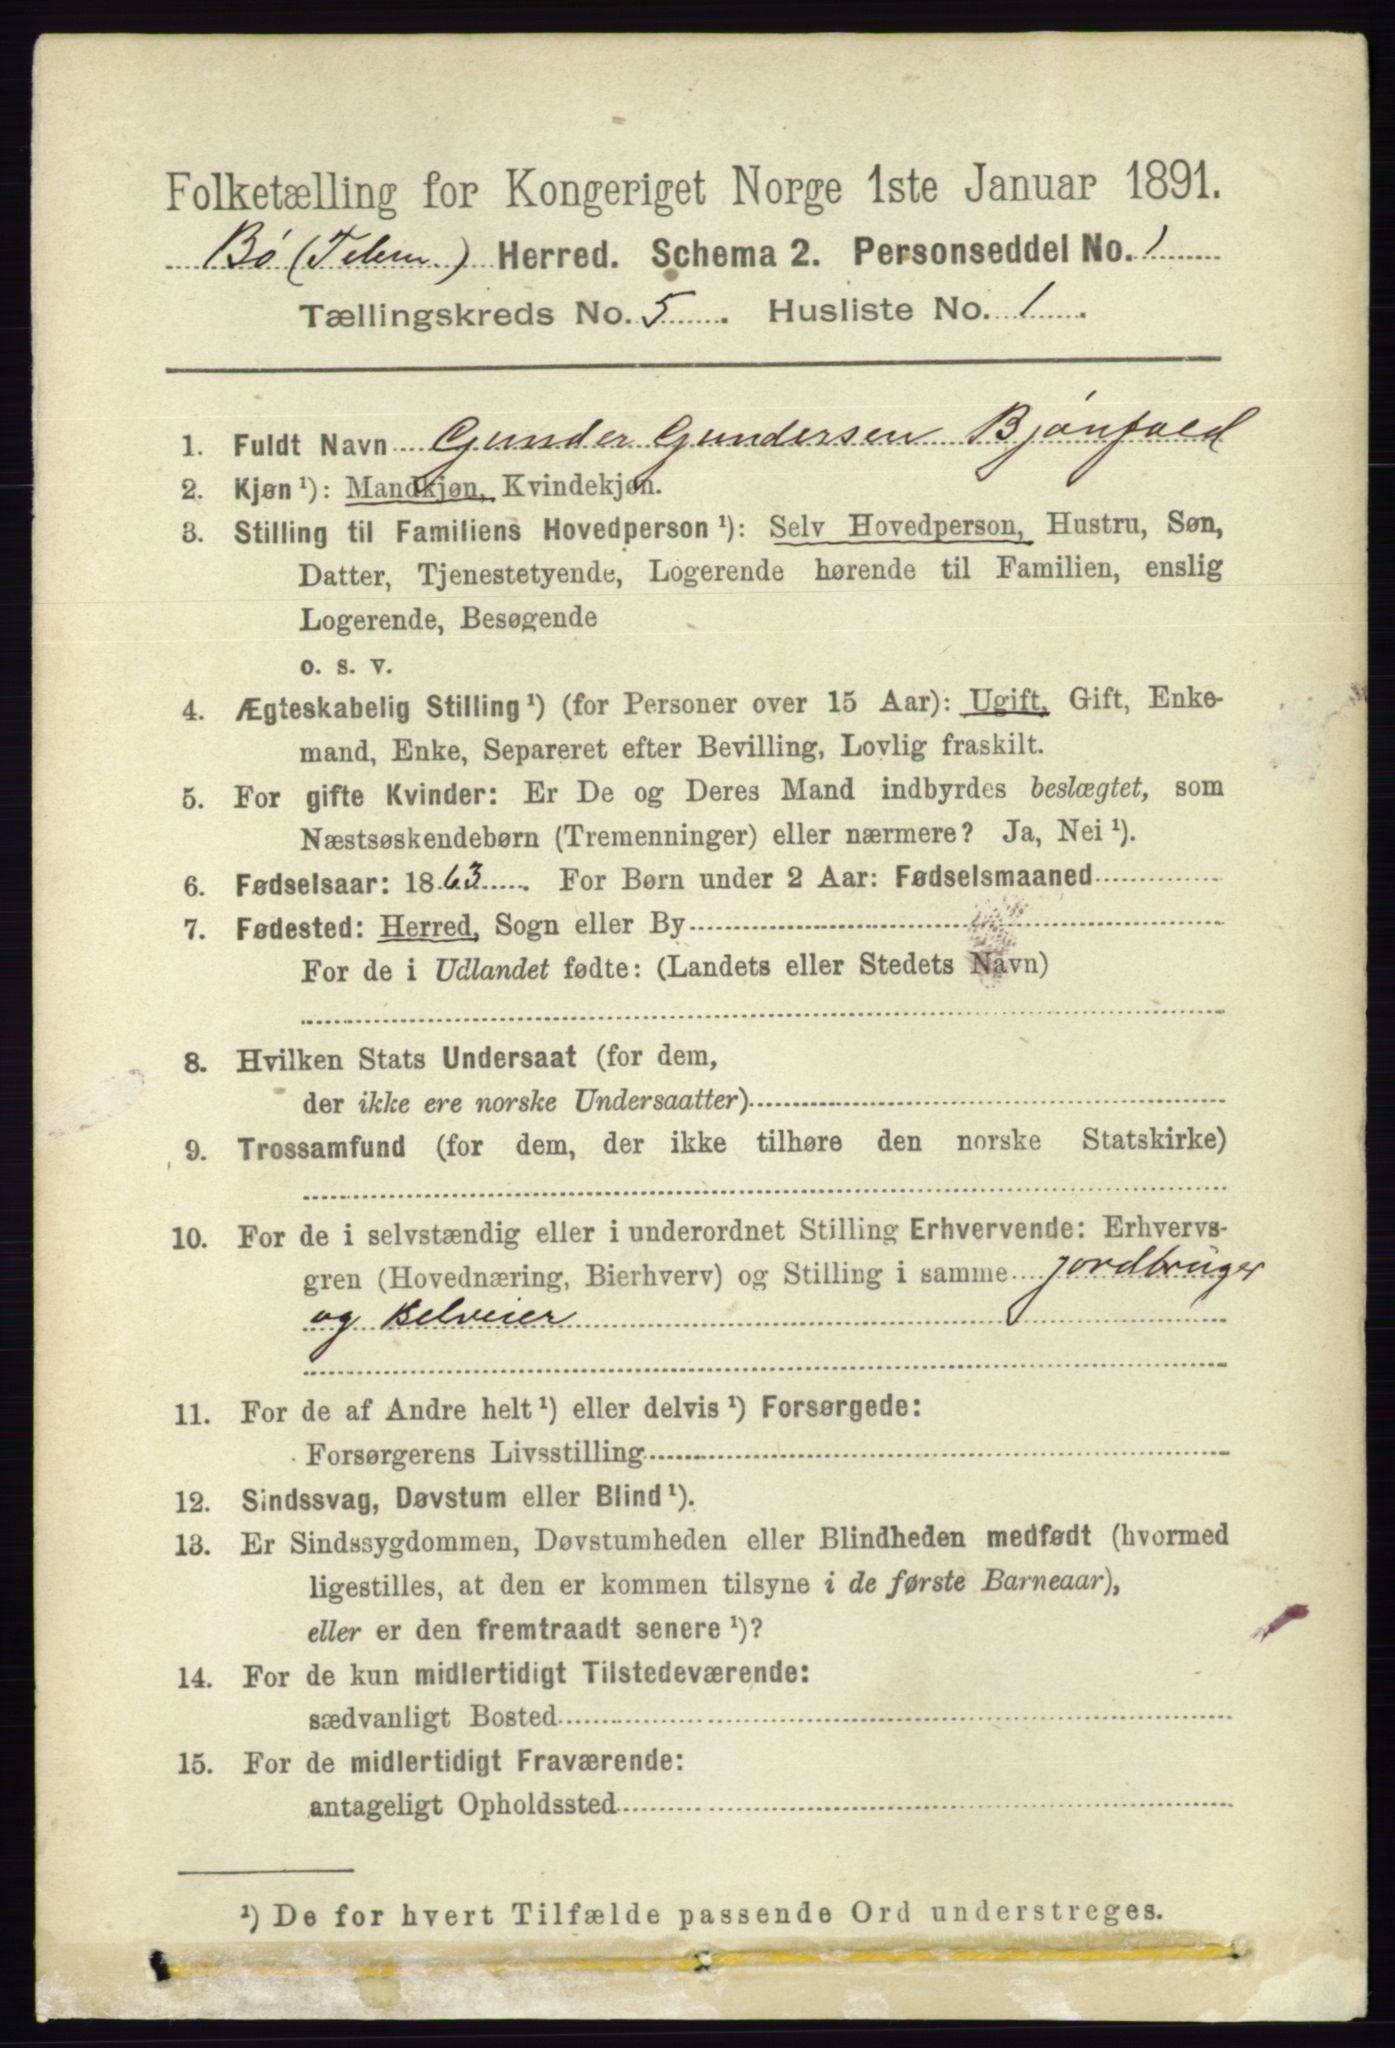 Folketælling for Kongeriget Norge 1ste Januar 1891.
Bø (Telem.) Herred. Schema 2. Personseddel No. 1
Tællingskreds No. 5. Husliste No. 1.
1. Fuldt Navn Gunder Gundersen Bjønfald
2. Kjøn ¹): Mandkjøn, Kvindekjøn.
3. Stilling til Familiens Hovedperson ¹): Selv Hovedperson, Hustru, Søn,
Datter, Tjenestetyende, Logerende hørende til Familien, enslig
Logerende, Besøgende
o. s. v.
4. Ægteskabelig Stilling ¹) (for Personer over 15 Aar): Ugift, Gift, Enke-
mand, Enke, Separeret efter Bevilling, Lovlig fraskilt.
5. For gifte Kvinder: Er De og Deres Mand indbyrdes beslægtet, som
Næstsøskendebørn (Tremenninger) eller nærmere? Ja, Nei ¹).
6. Fødselsaar: 1863. For Børn under 2 Aar: Fødselsmaaned
7. Fødested: Herred, Sogn eller By
For de i Udlandet fødte: (Landets eller Stedets Navn)
8. Hvilken Stats Undersaat (for dem,
der ikke ere norske Undersaatter)
9. Trossamfund (for dem, der ikke tilhøre den norske Statskirke)
10. For de i selvstændig eller i underordnet Stilling Erhvervende: Erhvervs-
gren (Hovednæring, Bierhverv) og Stilling i samme jordbruger
og selveier
11. For de af Andre helt ¹) eller delvis ¹) Forsørgede:
Forsørgerens Livsstilling
12. Sindssvag, Døvstum eller Blind ¹).
13. Er Sindssygdommen, Døvstumheden eller Blindheden medfødt (hvormed
ligestilles, at den er kommen tilsyne i de første Barneaar),
eller er den fremtraadt senere ¹)?
14. For de kun midlertidigt Tilstedeværende:
sædvanligt Bosted
15. For de midlertidigt Fraværende:
antageligt Opholdssted
¹) De for hvert Tilfælde passende Ord understreges.